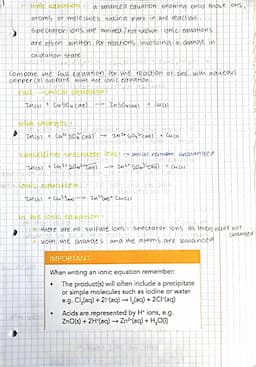 ionic equation : a balanced equation showing only those ions,
atoms or molecules taking part in the reaction.
Spectator ions are omitted / not shown. Ionic equations
are often written for reactions involving a change in
oxidation state
Compare the full equation for the reaction of zinc with aqueous
copper(II) sulfate with the ionic equation:
full chemical equation:
Zn(s) + CuSO4 (aq) → ZnSO4(aq) + Cu(s)
with charges:
Zn(s) + Cu2+ SO42- (aq) → Zn2+ SO42-(aq) + Cu(s)
cancelling spectator ions: → which remain unchanged
Zn(s) + Cu2+ SO42-(aq) → Zn2+ SO42-(aq) + Cu(s)
ionic equation:
Zn(s) + Cu2+(aq) → Zn2+(aq) + Cu(s)
In the ionic equation:
there are no sulfate ions: spectator ions as they have not changed
both the charges and the atoms are balanced
IMPORTANT
When writing an ionic equation remember:
• The product(s) will often include a precipitate
or simple molecules such as iodine or water
e.g. Cl2(aq) + 2I-(aq) → I2(aq) + 2Cl-(aq)
• Acids are represented by H+ ions, e.g.
ZnO(s) + 2H+(aq) → Zn2+(aq) + H2O(l)